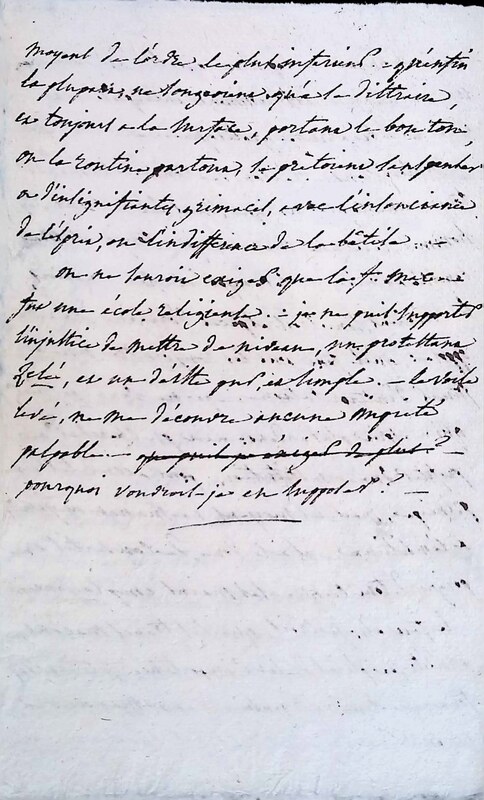 moyens de l'ordre le plus inferieur. – qu'enfin
la plupart, ne songeoient qu'a se distraire,
et toujours a la surface, portant le bon ton,
ou la routine partout, se pretoient sans penser
a d'insignifiantes grimaces, avec l'insouciance
de l'esprit, ou l'indifference de la bêtise. –
on ne sauroit exiger que la f. mac–e
fut une école religieuse. – je ne puis supporter
l'injustice de mettre de niveau, un protestant
zelé, et un déiste pur et simple. – le voile
levé, ne me découvre aucune impieté
palpable. – que puis-je exiger de plus? –
pourquoi voudrois-je en supposer? –